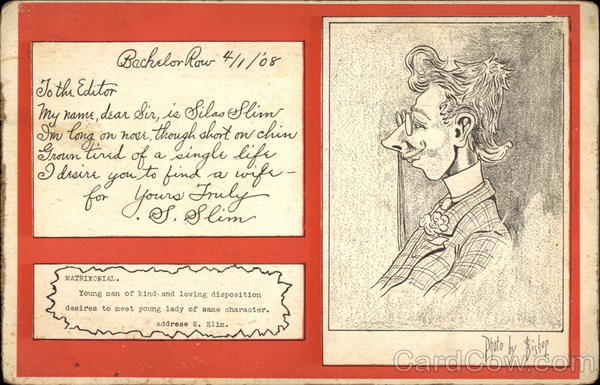 Bachelor Row 4/1/'08
To the Editor
My name, dear Sir, is Silas Slim
I'm long on nose, though short on chin
Grown tired of a single life
I desire you to find a wife -
for Yours Truly
. S. Slim
MATRIMONIAL.
Young man of kind and loving disposition
desires to meet young lady of same character.
Address S. Slim.
Photo by Bishop
CardCow.com